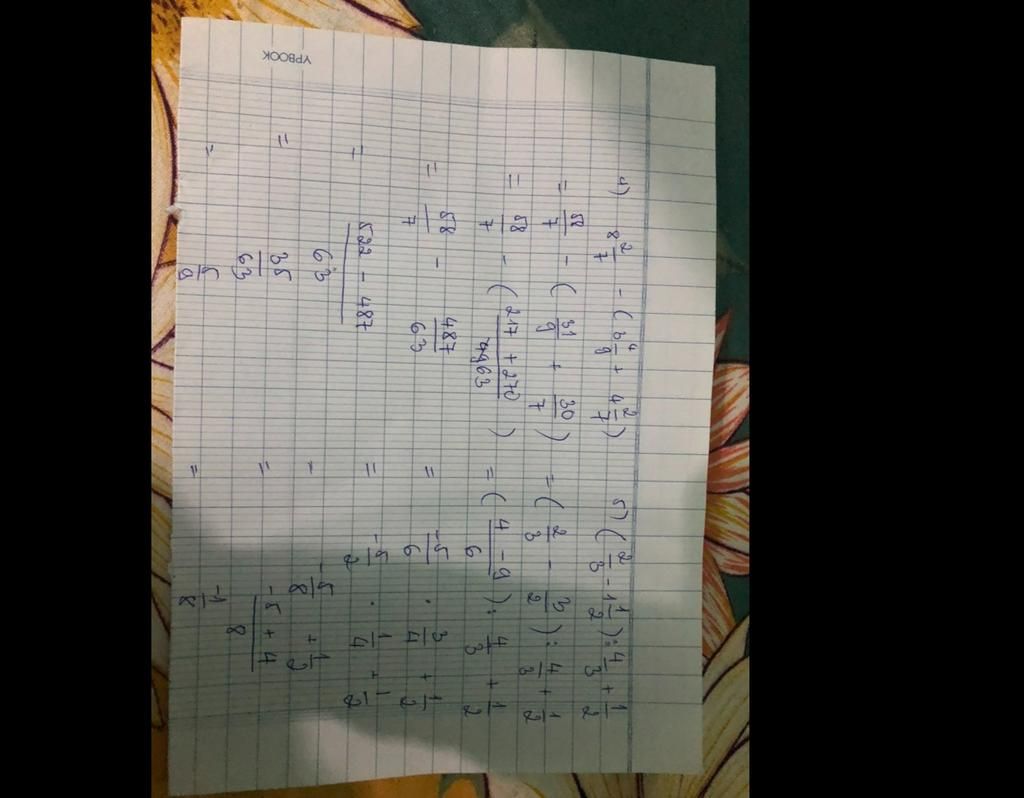 YPBOOK
4) 8 2/7 - ( 3 4/9 + 4 2/7 )
= 58/7 - ( 31/9 + 30/7 )
= 58/7 - ( 217 + 270 / 63 )
= 58/7 - 487/63
= 522 - 487 / 63
= 35/63
= 5/9
5) ( 2/3 - 1 1/2 ) : 4/3 + 1/2
= ( 2/3 - 3/2 ) : 4/3 + 1/2
= ( 4 - 9 / 6 ) : 4/3 + 1/2
= -5/6 . 3/4 + 1/2
= -5/2 . 1/4 + 1/2
= -5/8 + 1/2
= -5 + 4 / 8
= -1/8